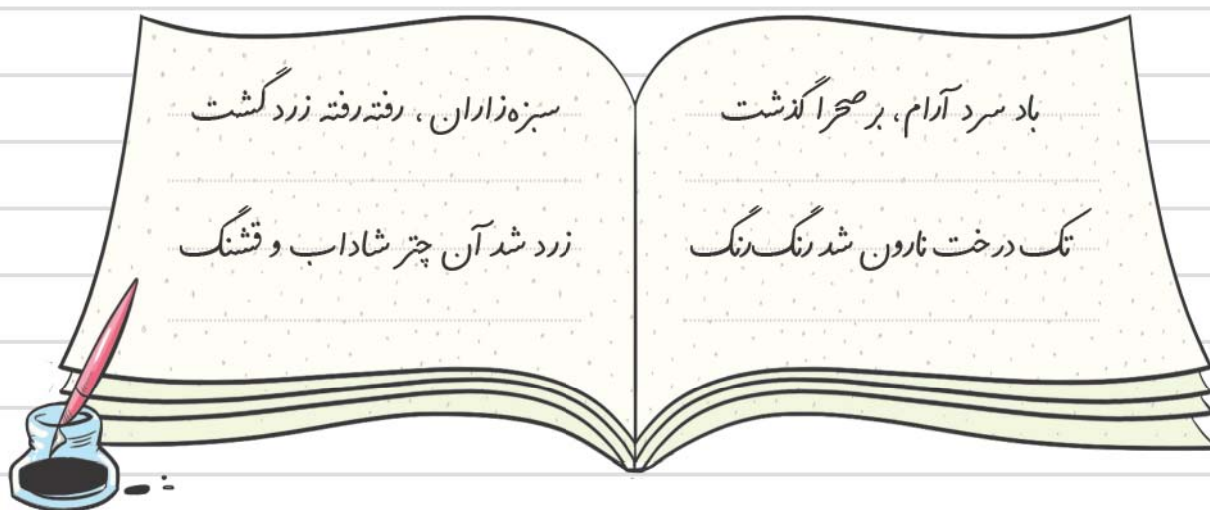 باد سرد آرام، بر صحرا گذشت
سبزه‌زاران، رفته‌رفته زرد گشت
تک درخت نارون شد رنگ‌رنگ
زرد شد آن چتر شاداب و قشنگ